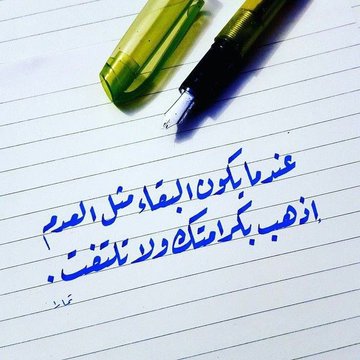 عندما يكون البقاء مثل العدم
إذهب بكرامتك ولا تلتفت .